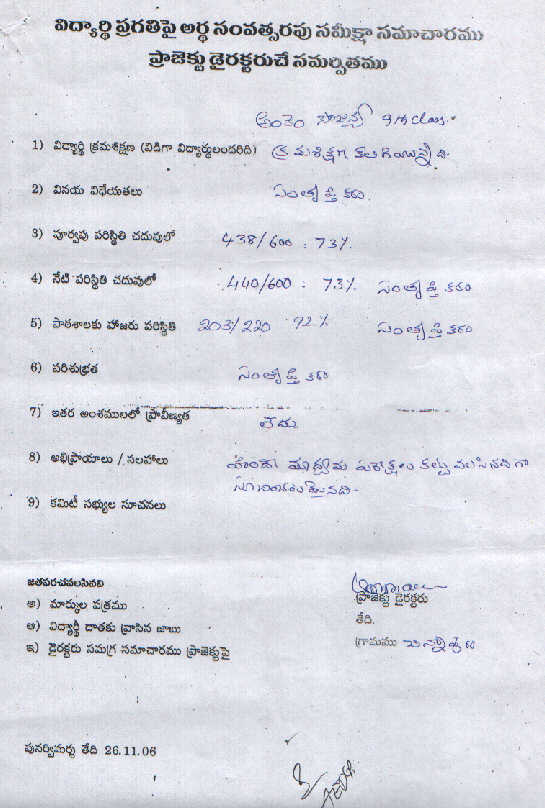 విద్యార్థి ప్రగతిపై అర్థ సంవత్సరపు సమీక్షా సమాచారము
ప్రాజెక్టు డైరక్టరుచే సమర్పితము
9th class.
1) విద్యార్థి క్రమశిక్షణ (విడిగా విద్యార్థులందరిది) క్రమశిక్షణ కలిగియున్నది.
2) వినయ విధేయతలు సంతృప్తి కరం.
3) పూర్వపు పరిస్థితి చదువులో 438/600 : 73%
4) నేటి పరిస్థితి చదువులో 440/600 : 73% సంతృప్తి కరం
5) పాఠశాలకు హాజరు పరిస్థితి 203/220 92% సంతృప్తి కరం
6) పరిశుభ్రత సంతృప్తి కరం
7) ఇతర అంశములలో ప్రావీణ్యత లేదు
8) అభిప్రాయాలు / సలహాలు
9) కమిటీ సభ్యుల సూచనలు
జతపరచవలసినవి
అ) మార్కుల పత్రము
ఆ) విద్యార్థి దాతకు వ్రాసిన జాబు
ఇ) డైరక్టరు సమగ్ర సమాచారము ప్రాజెక్టుపై
ప్రాజెక్టు డైరక్టరు
తేది.
గ్రామము
పునర్విమర్శ తేది 26.11.06